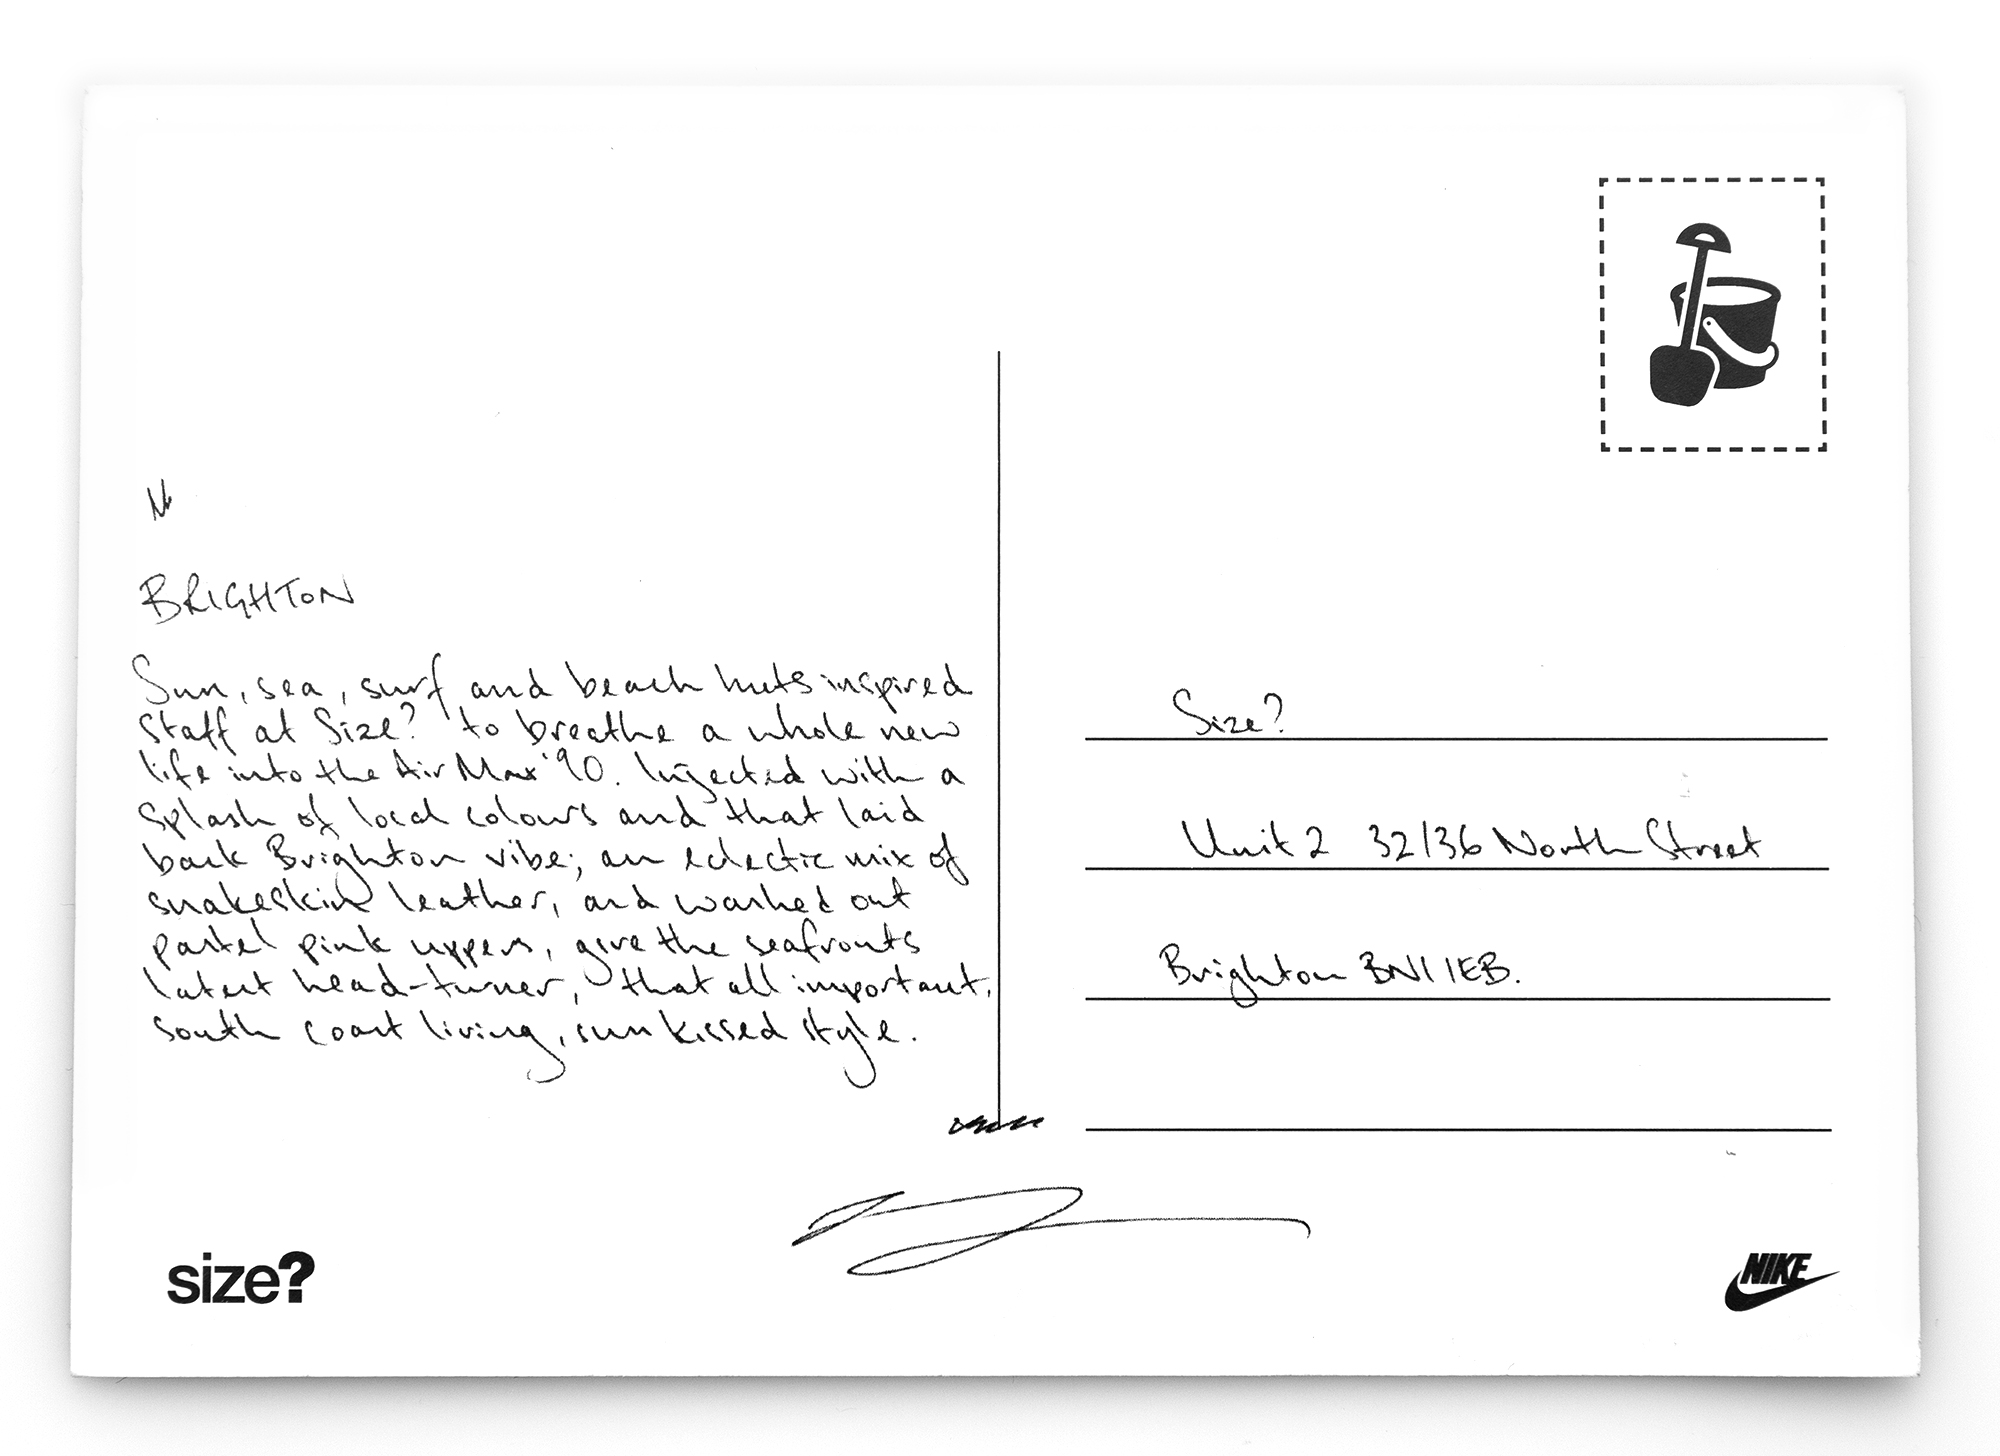 BRIGHTON
Sun, sea, surf and beach huts inspired
staff at Size? to breathe a whole new
life into the Air Max '90. Injected with a
splash of local colours and that laid
back Brighton vibe; an eclectic mix of
snakeskin leather, and washed out
pastel pink uppers, give the seafronts
latest head-turner, that all important,
south coast living, sun kissed style.
Size?
Unit 2 32/36 North Street
Brighton BN1 1EB.
size?
NIKE